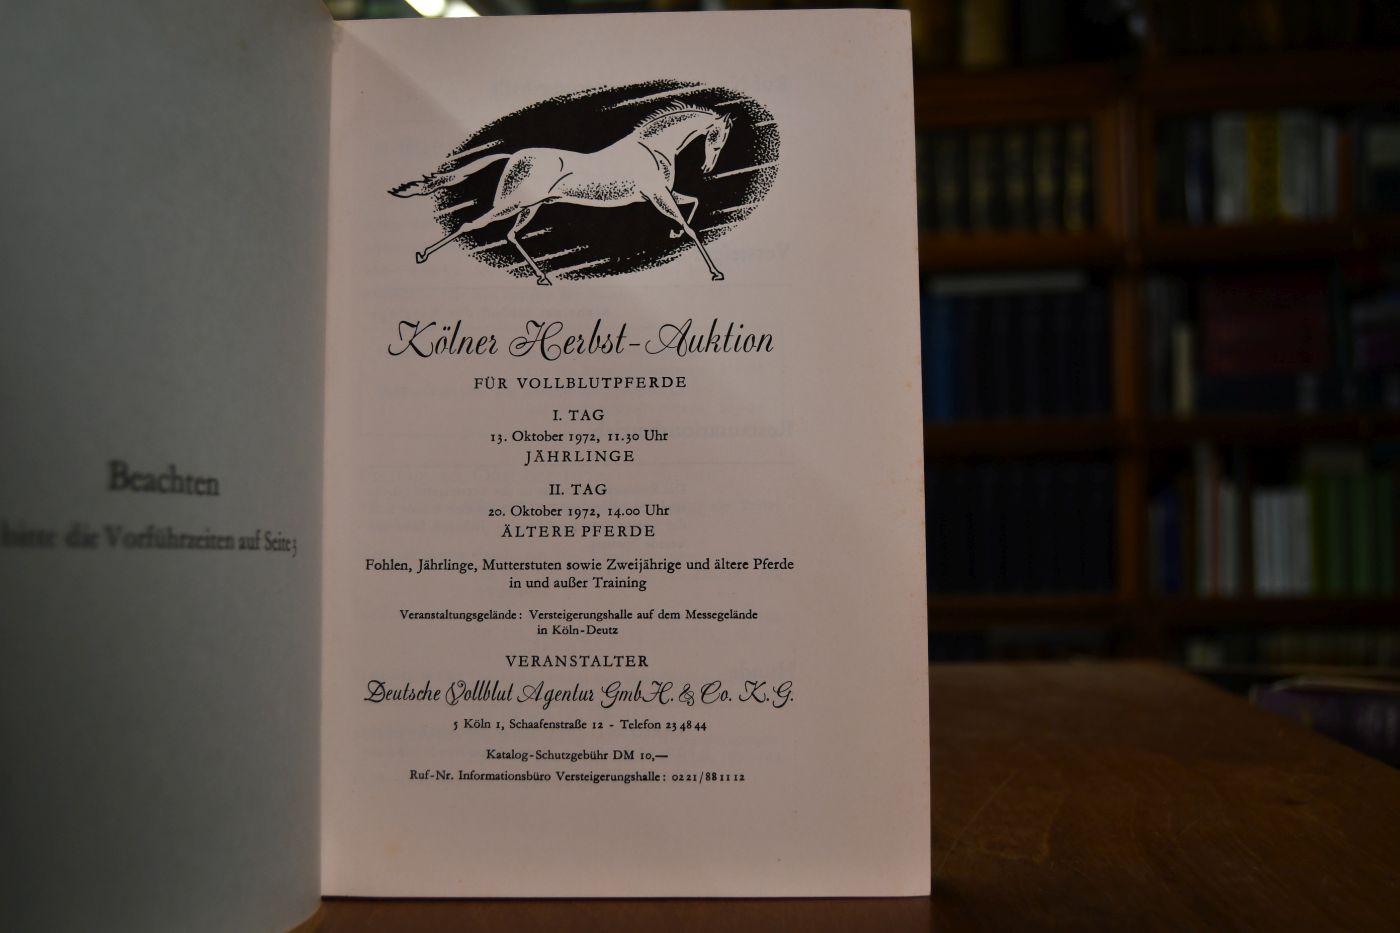 Beachten
bitte die Vorführzeiten auf Seite 3
Kölner Herbst-Auktion
FÜR VOLLBLUTPFERDE
I. TAG
13. Oktober 1972, 11.30 Uhr
JÄHRLINGE
II. TAG
20. Oktober 1972, 14.00 Uhr
ÄLTERE PFERDE
Fohlen, Jährlinge, Mutterstuten sowie Zweijährige und ältere Pferde
in und außer Training
Veranstaltungsgelände: Versteigerungshalle auf dem Messegelände
in Köln-Deutz
VERANSTALTER
Deutsche Vollblut Agentur GmbH. & Co. K.G.
5 Köln 1, Schaafenstraße 12 - Telefon 23 48 44
Katalog-Schutzgebühr DM 10,—
Ruf-Nr. Informationsbüro Versteigerungshalle: 0221/88 11 12